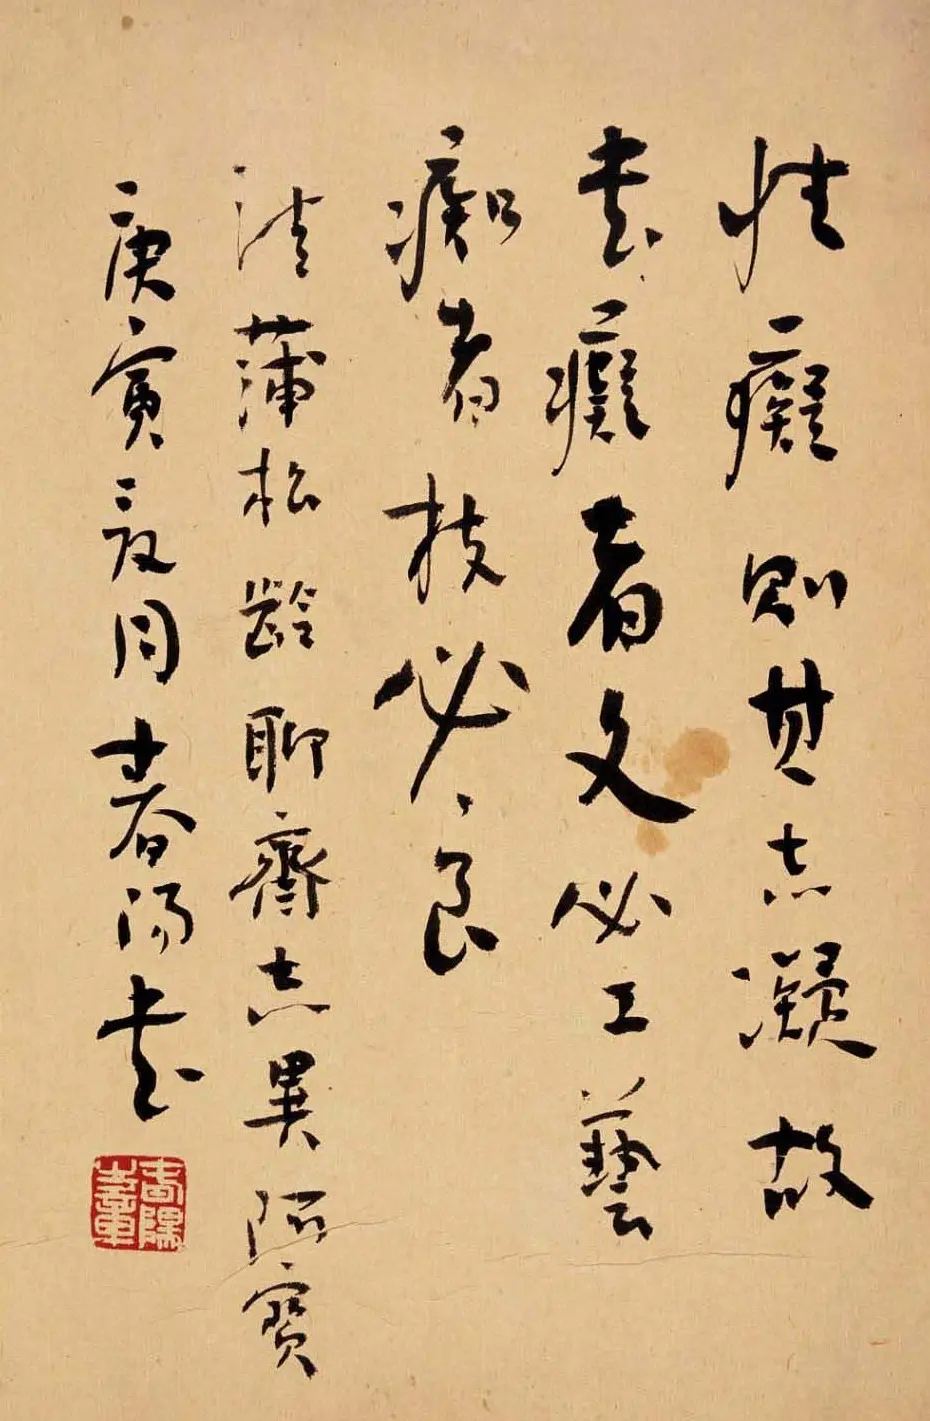 性癡則其志凝故
書癡者文必工藝
痴者技必良
清蒲松齡聊齋志異阿寶
庚寅夏月春陽書